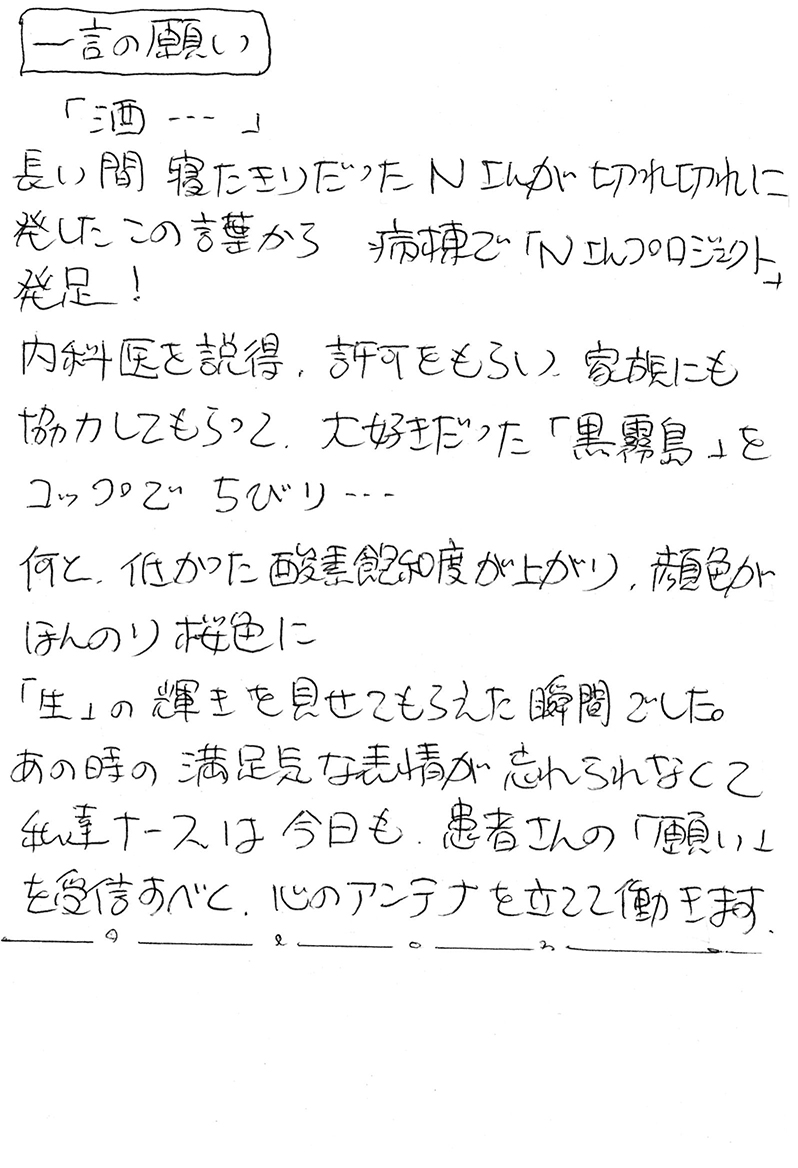 一言の願い
「酒…」
長い間 寝たきりだったNさんが 切れ切れに
発した この言葉から 病棟で「Nさんプロジェクト」
発足！
内科医を説得、許可をもらい、家族にも
協力してもらって、大好きだった「黒霧島」を
コップで ちびり…
何と、低かった酸素飽和度が上がり、顔色が
ほんのり桜色に
「生」の輝きを見せてもらえた瞬間でした。
あの時の満足気な表情が忘れられなくて
私達ナースは今日も、患者さんの「願い」
を受信すべく、心のアンテナを立てて働きます。